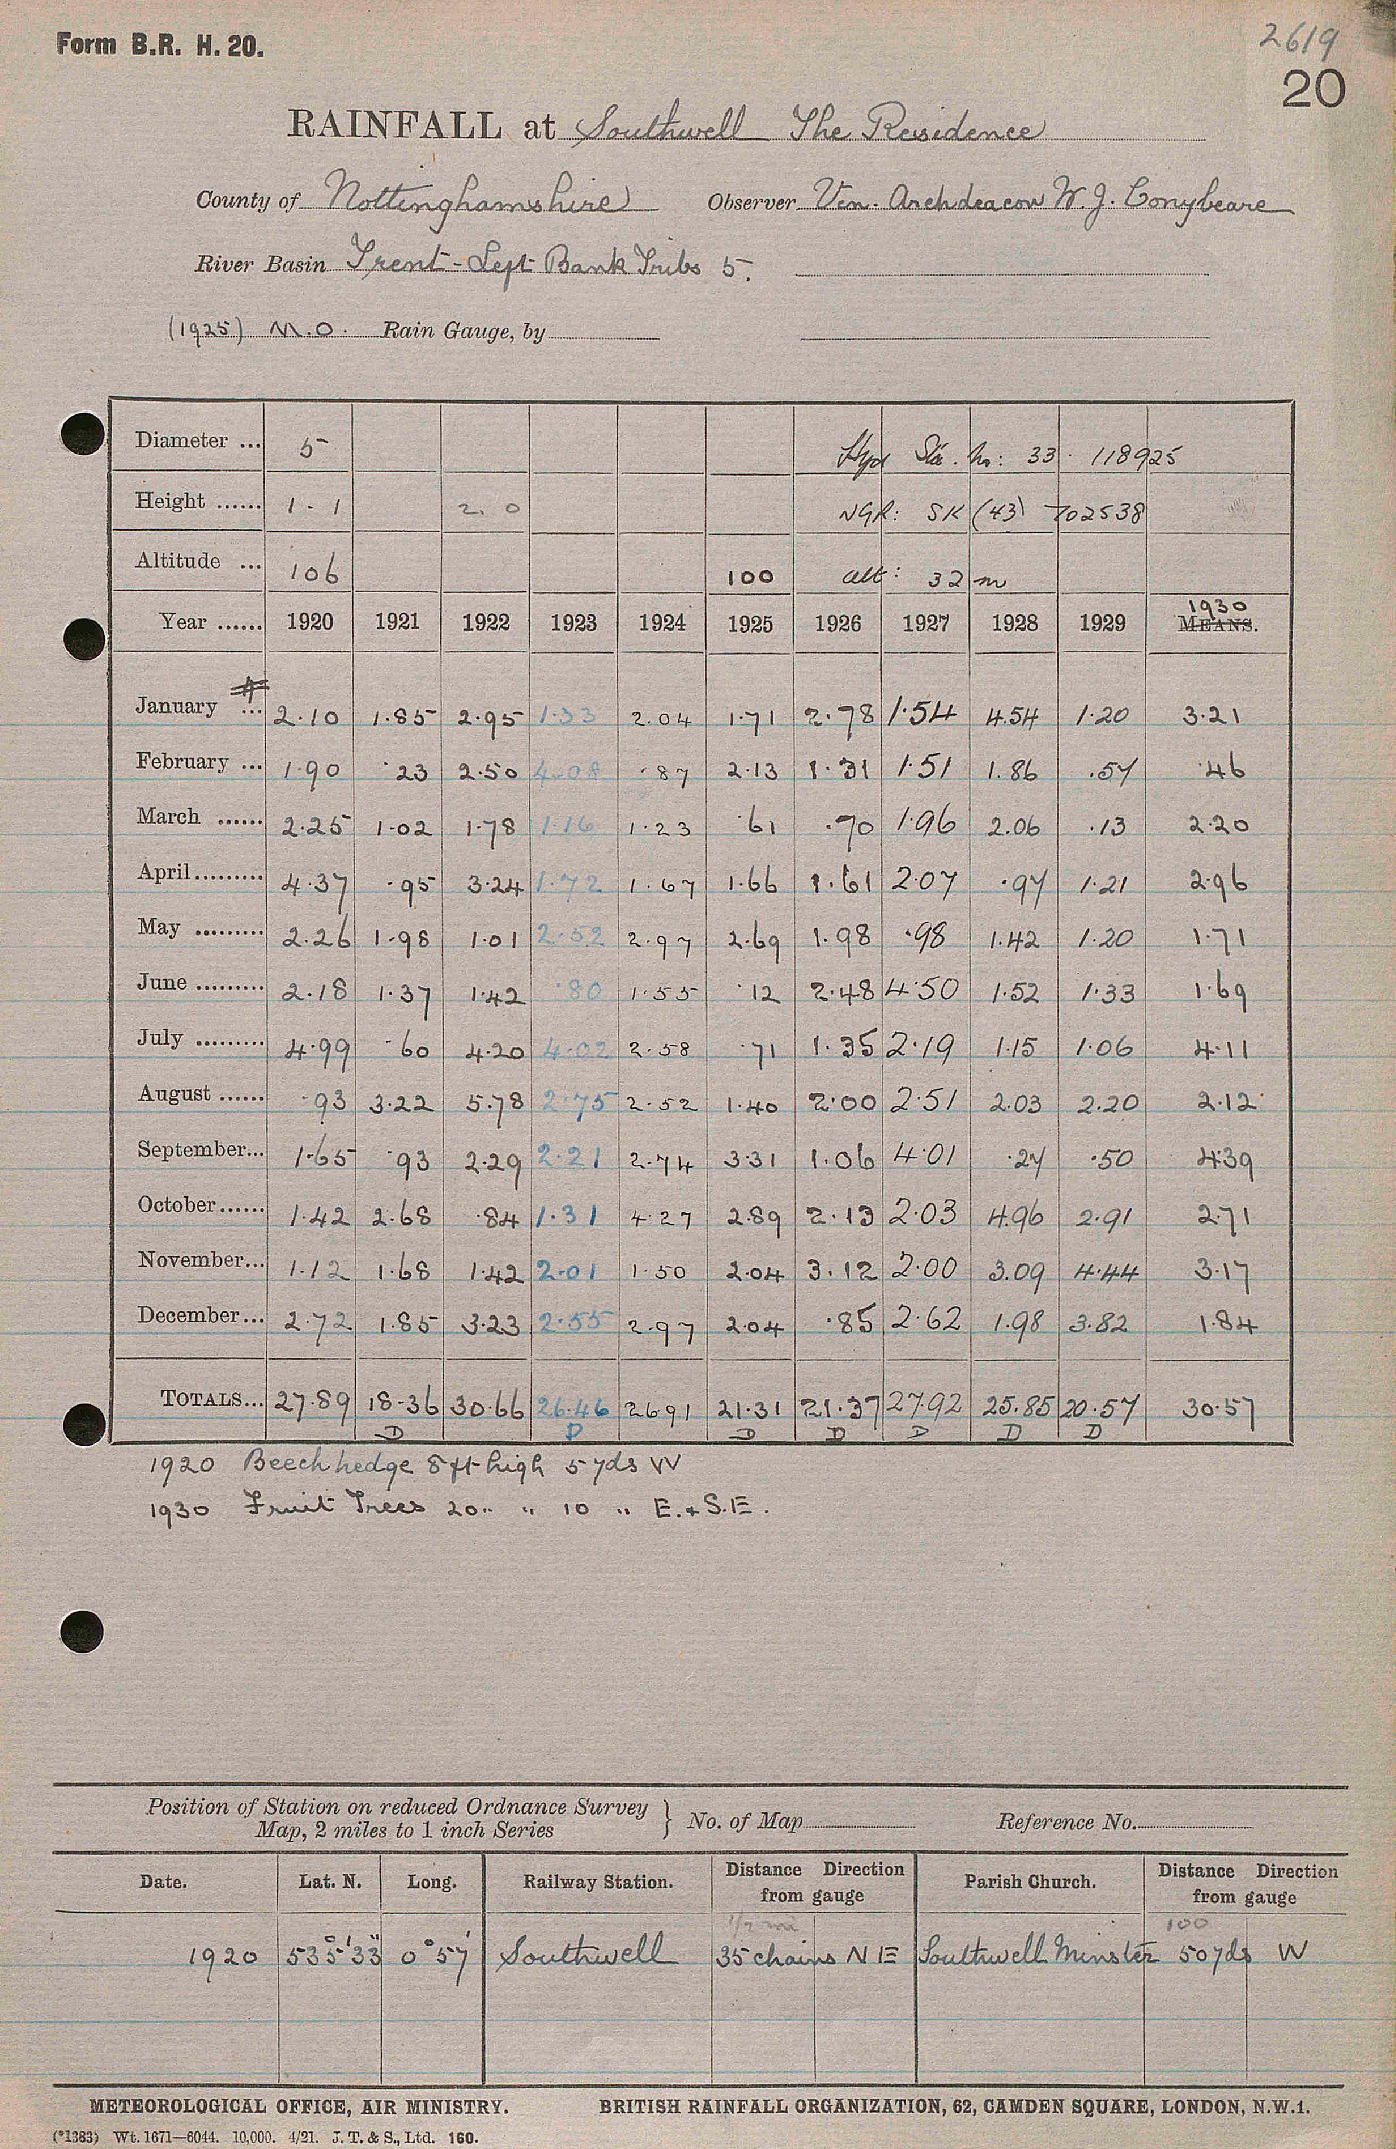 Form B.R. H. 20.
2619
20
RAINFALL at Southwell The Residence
County of Nottinghamshire Observer Ven. Archdeacon W. J. Conybeare
River Basin Trent - Left Bank Tribs 5.
(1925) M.O. Rain Gauge, by
Diameter ... 5 Hyd Sta. No: 33 118925
Height ...... 1.1 2.0 NGR: SK (43) 702538
Altitude ... 106 100 alt: 32 m
1930
Year ...... 1920 1921 1922 1923 1924 1925 1926 1927 1928 1929 MEANS.
January # ... 2.10 1.85 2.95 1.33 2.04 1.71 2.78 1.54 4.54 1.20 3.21
February ... 1.90 .23 2.50 4.08 .87 2.13 1.31 1.51 1.86 .57 .46
March ...... 2.25 1.02 1.78 1.16 1.23 .61 .70 1.96 2.06 .13 2.20
April......... 4.37 .95 3.24 1.72 1.67 1.66 1.61 2.07 .97 1.21 2.96
May ......... 2.26 1.98 1.01 2.52 2.97 2.69 1.98 .98 1.42 1.20 1.71
June ......... 2.18 1.37 1.42 .80 1.55 .12 2.48 4.50 1.52 1.33 1.69
July ......... 4.99 .60 4.20 4.02 2.58 .71 1.35 2.19 1.15 1.06 4.11
August ...... .93 3.22 5.78 2.75 2.52 1.40 2.00 2.51 2.03 2.20 2.12
September... 1.65 .93 2.29 2.21 2.74 3.31 1.06 4.01 .27 .50 4.39
October...... 1.42 2.68 .84 1.31 4.27 2.89 2.13 2.03 4.96 2.91 2.71
November... 1.12 1.68 1.42 2.01 1.50 2.04 3.12 2.00 3.09 4.44 3.17
December... 2.72 1.85 3.23 2.55 2.97 2.04 .85 2.62 1.98 3.82 1.84
TOTALS... 27.89 18.36 30.66 26.46 26.91 21.31 21.37 27.92 25.85 20.57 30.57
D D D D D D D
1920 Beech hedge 8 ft high 5 yds W
1930 Fruit Trees 20 " " 10 " E. + S.E.
Position of Station on reduced Ordnance Survey
Map, 2 miles to 1 inch Series } No. of Map Reference No.
Date. Lat. N. Long. Railway Station. Distance Direction from gauge Parish Church. Distance Direction from gauge
1/2 mi 100
1920 53° 5' 33" 0° 57' Southwell 35 chains NE Southwell Minster 50 yds W
METEOROLOGICAL OFFICE, AIR MINISTRY. BRITISH RAINFALL ORGANIZATION, 62, CAMDEN SQUARE, LONDON, N.W.1.
(*1383) Wt. 1671—6044. 10,000. 4/21. J. T. & S., Ltd. 160.